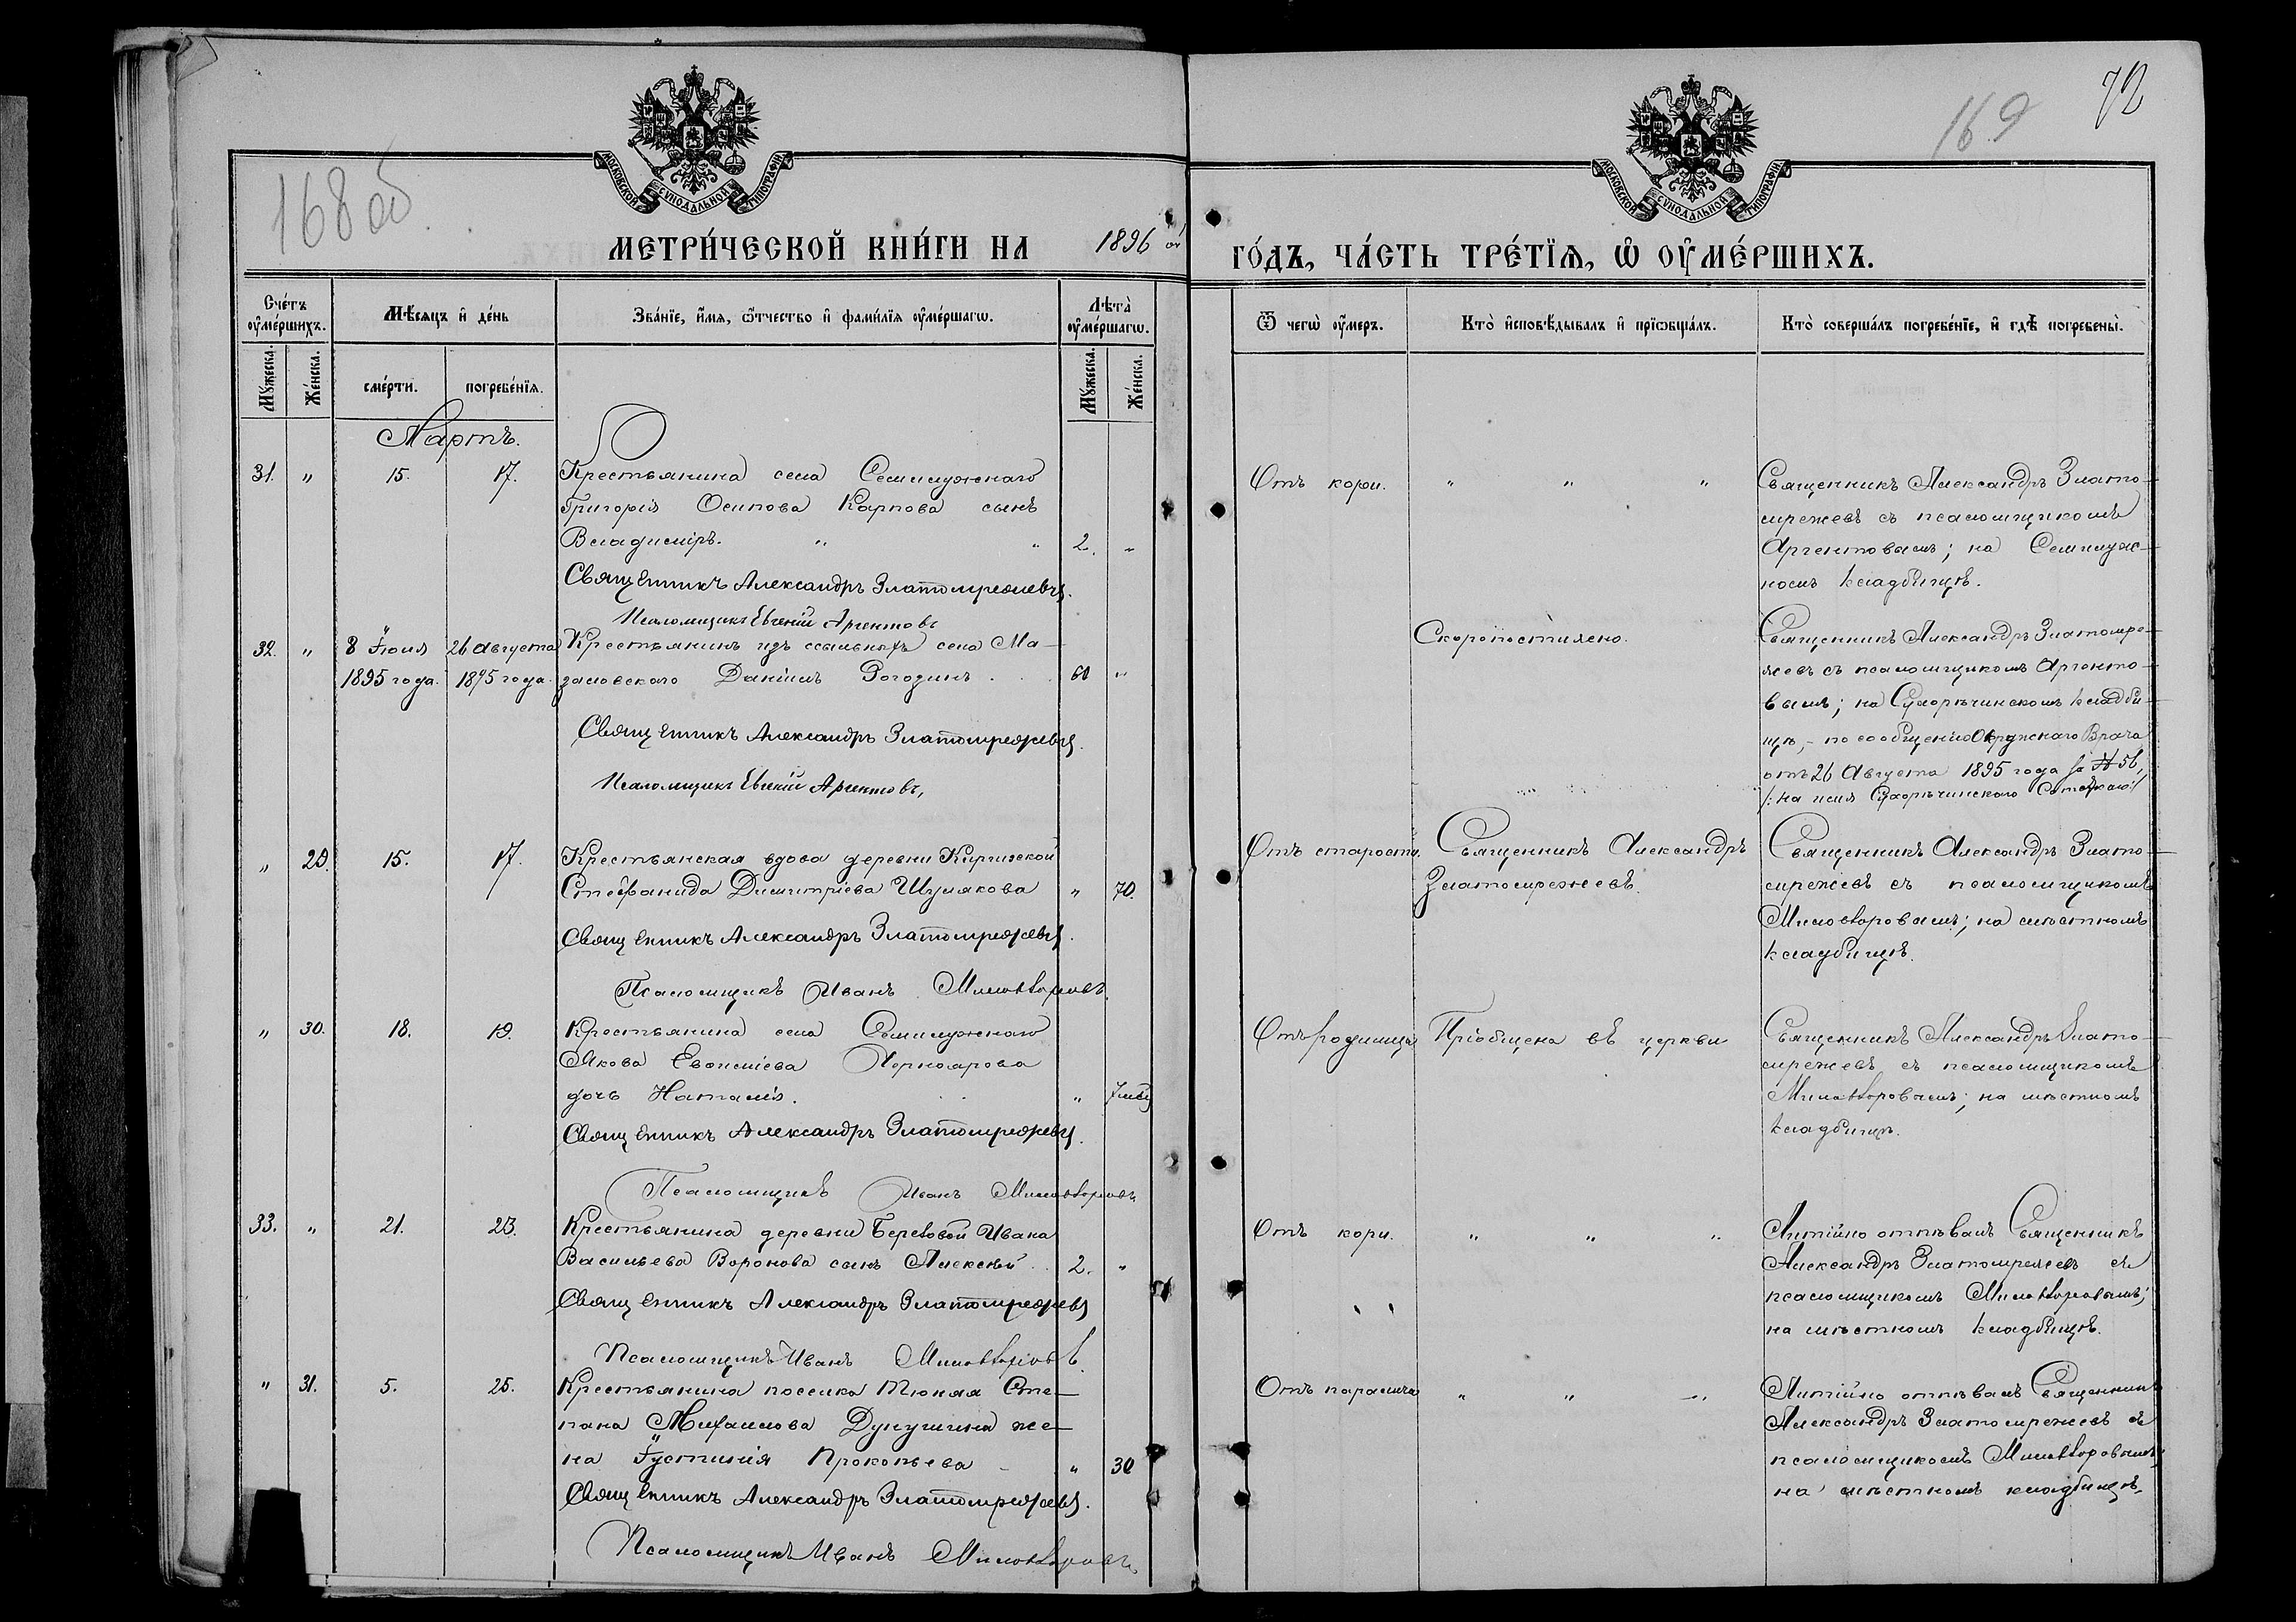 168 об
169
72
МОСКОВСКОЙ СУНОДАЛЬНОЙ ТИПОГРАФIИ
МОСКОВСКОЙ СУНОДАЛЬНОЙ ТИПОГРАФIИ
МЕТРИ́ЧЕСКОЙ КНИ́ГИ НА 1896 ой
ГО́ДЪ, ЧА́СТЬ ТРЕ́ТЇѦ, Ѡ҆ ОУ҆МЕ́РШИХЪ.
Сче́тъ оу҆ме́ршихъ.
Мѣ́сяцъ и҆ де́нь
Зва́нїе, и҆́мя, ѻ҆́тчество и҆ фами́лїя оу҆ме́ршагѡ.
Лѣта̀ оу҆ме́ршагѡ.
Ѿ чегѡ̀ оу҆́меръ.
Кто̀ и҆сповѣ́дывалъ и҆ прїѡбща́лъ.
Кто̀ соверша́лъ погребе́нїе, и҆ гдѣ̀ погребены̀.
Мꙋ́жеска.
Же́нска.
сме́рти.
погребе́нїя.
Мꙋ́жеска.
Же́нска.
Мартъ.
31. " 15. 17.
Крестьянина села Семилужнаго
Григорія Осипова Карпова сынъ
Владиміръ. " " 2. "
Священникъ Александръ Златомрежевъ.
Псаломщикъ Евгеній Аргентовъ
Отъ кори. " " "
Священникъ Александръ Злато-
мрежевъ съ псаломщикомъ
Аргентовымъ; на Семилуж-
номъ кладбищѣ.
32. " 8 Іюля 26 Августа
1895 года. 1895 года.
Крестьянинъ изъ ссыльныхъ села Ма-
заловскаго Даніилъ Рогозинъ . 60 "
Священникъ Александръ Златомрежевъ.
Псаломщикъ Евгеній Аргентовъ,
Скоропостижно.
Священникъ Александръ Златомре-
жевъ съ псаломщикомъ Аргенто-
вымъ; на Сухорѣчинскомъ кладби-
щѣ, - по сообщенію Окружнаго Врача
отъ 26 Августа 1895 года за № 56,
/: на имя Сухорѣчинскаго Сотскаго:/
" 29. 15. 17.
Крестьянская вдова деревни Киргизской
Стефанида Димитріева Шумакова " 70.
Священникъ Александръ Златомрежевъ.
Псаломщикъ Иванъ Миловзоровъ.
Отъ старости.
Священникъ Александръ
Златомрежевъ.
Священникъ Александръ Злато-
мрежевъ съ псаломщикомъ
Миловзоровымъ; на мѣстномъ
кладбищѣ.
" 30. 18. 19.
Крестьянина села Семилужнаго
Якова Евѳиміева
дочь Наталія. " 7 мѣс
Священникъ Александръ Златомрежевъ.
Псаломщикъ Иванъ Миловзоровъ
Отъ родимца
Пріобщена въ церкви
Священникъ Александръ Злато-
мрежевъ съ псаломщикомъ
Миловзоровымъ; на мѣстномъ
кладбищѣ.
33. " 21. 23.
Крестьянина деревни Березовой Ивана
Васильева Воронова сынъ Алексѣй . 2. "
Священникъ Александръ Златомрежевъ
Псаломщикъ Иванъ Миловзоровъ.
Отъ кори. " " "
Литійно отпѣвалъ Священникъ
Александръ Златомрежевъ съ
псаломщикомъ Миловзоровымъ;
на мѣстномъ кладбищѣ.
" 31. 5. 25.
Крестьянина поселка Тюняя Сте-
пана Михаилова же-
на Іустинія Прокопьева " 30
Священникъ Александръ Златомрежевъ.
Псаломщикъ Иванъ Миловзоровъ
Отъ паралича " " "
Литійно отпѣвалъ Священникъ
Александръ Златомрежевъ съ
псаломщикомъ Миловзоровымъ
на мѣстномъ кладбищѣ.